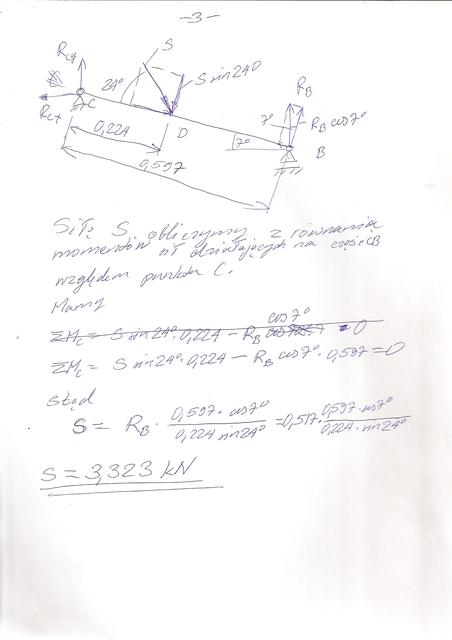 -3-
S
Rcy
24°
S sin24°
C
Rcx
D
0,224
0,597
7°
RB
7°
RB cos7°
B
Siłę S obliczymy z równania
momentów sił działających na część CB
względem punktu C.
Mamy
cos7°
ΣMc = S sin24°·0,224 – RB = 0
ΣMc = S sin24°·0,224 – RB cos7°·0,597 = 0
stąd
S = RB · 0,597·cos7° / 0,224 sin24° = 0,517· 0,597·cos7° / 0,224·sin24°
S = 3,323 kN